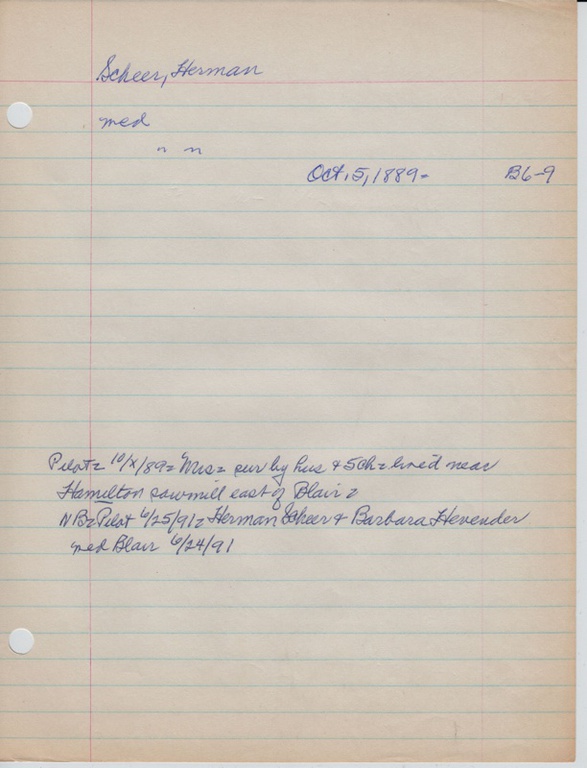 Scheer, Herman
med
" "
Oct. 5, 1889- B6-9
Pilot= 10/x/89= Mrs= sur by hus & 5ch= lived near
Hamilton sawmill east of Blair=
NB= Pilot 6/25/91= Herman Scheer & Barbara Hevender
med Blair 6/24/91